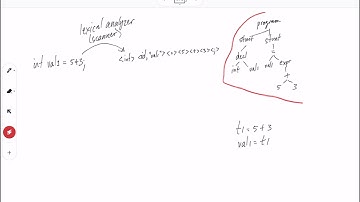 lexical analyzer
(scanner)
int val1 = 5+3;
<int> <id,"val1"> <=> <5> <+> <3> <;>
program
stmt stmt
decl =
int val1 val1 expr
+
5 3
t1 = 5+3
val1 = t1